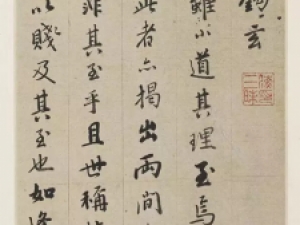 鈎玄
雖小道其理至焉
此者亦揭出兩間
非其至乎且世稱
以賤及其至也如